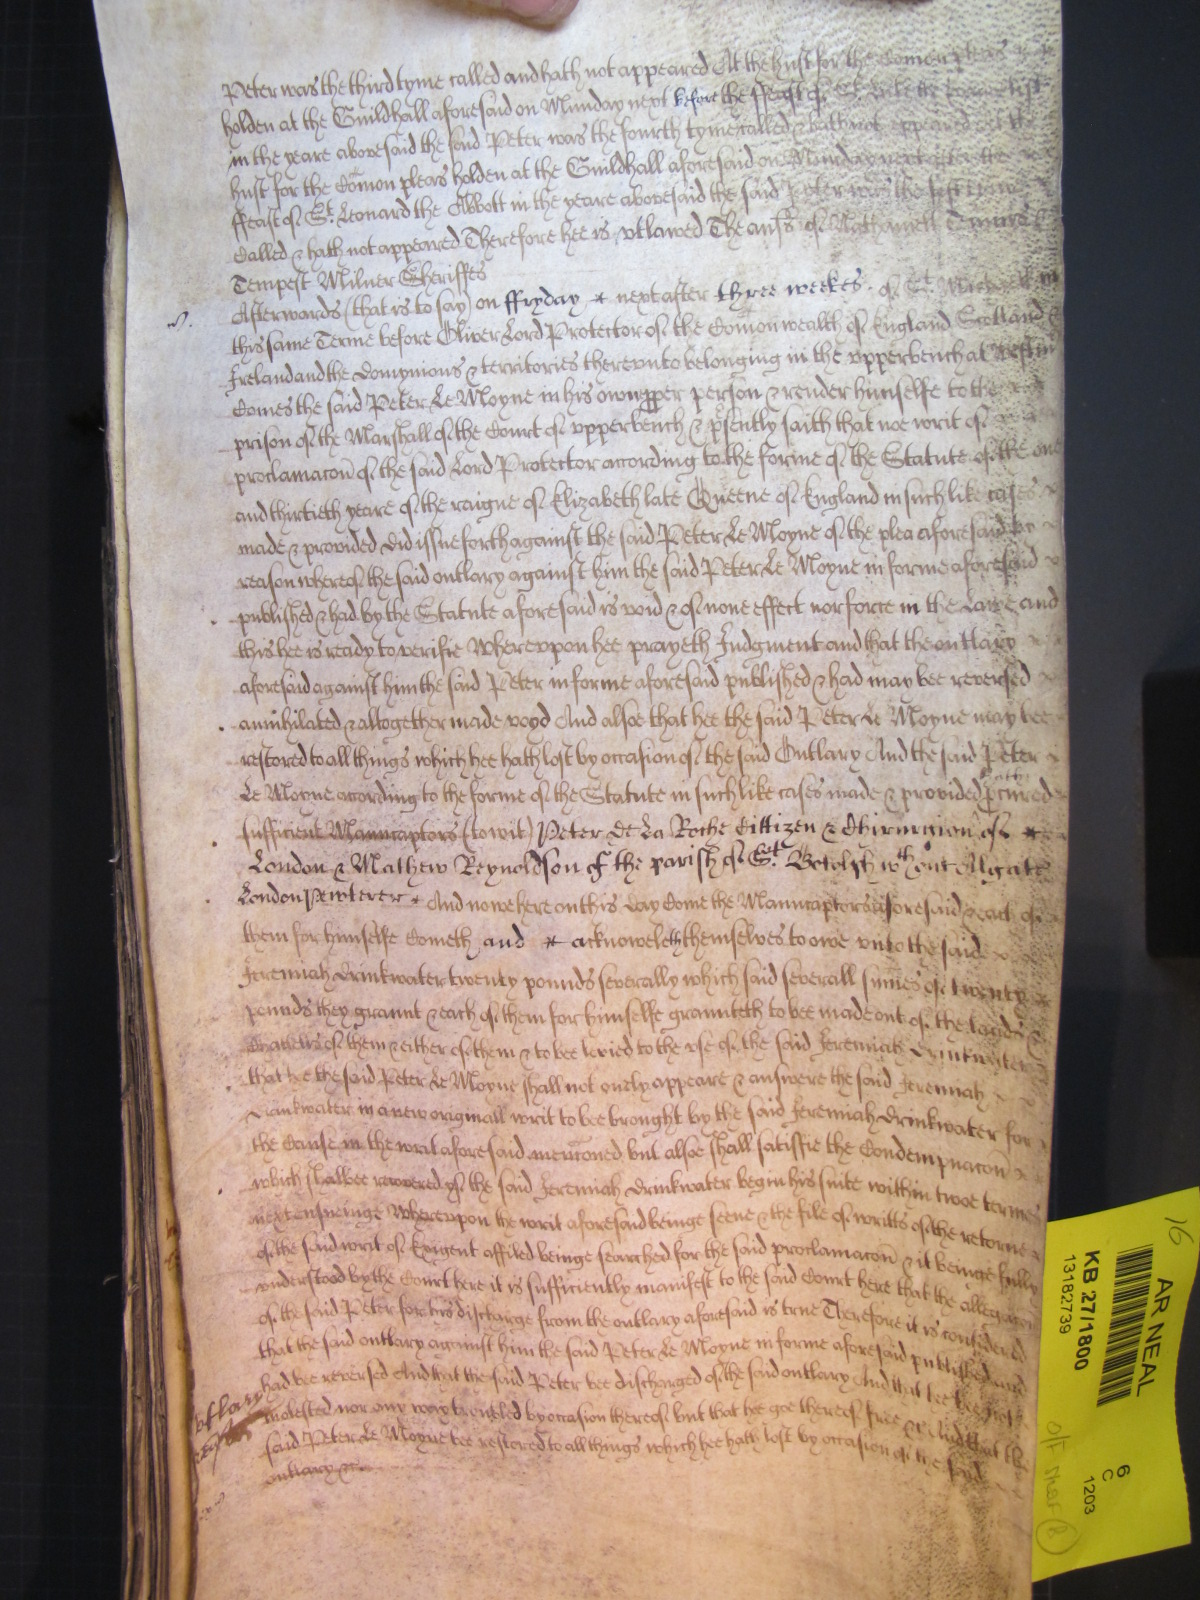 Peter was the third tyme called and hath not appeared At the hust for the Comon pleas
holden at the Guildhall aforesaid on Munday next before the ffeast of St. Luke the Evangelist
in the yeare abovesaid the said Peter was the fourth tyme called & hath not appeared at the
hust for the Comon pleas holden at the Guildhall aforesaid on Munday next after the
ffeast of St. Leonard the Abbott in the yeare abovesaid the said Peter was the fift tyme
Called & hath not appeared Therefore hee is utlawed The answ of Nathaniell Temmes &
Tempest Milner Sheriffes
Afterwards (that is to say) on ffryday next after three weekes of St. Michaell in
this same Terme before Oliver Lord Protector of the Comonwealth of England Scotland &
Ireland and the dominyons & territories thereunto belonging in the upperbench at Westm
Comes the said Peter Le Moyne in his owne pper person & render himselfe to the
prison of the Marshall of the Court of upperbench & psently saith that noe writ of
proclamacon of the said Lord Protector according to the forme of the Statute of the one
and thirtieth yeare of the raigne of Elizabeth late Queene of England in such like cases
made & provided did issue forth against the said Peter Le Moyne of the plea aforesaid by
reason whereof the said outlary against him the said Peter Le Moyne in forme aforesaid
published & had by the Statute aforesaid is void & of none effect nor force in the Lawe and
this hee is ready to verifie Whereupon hee prayeth Judgment and that the outlary
aforesaid against him the said Peter in forme aforesaid published & had may bee reversed
annihilated & altogether made voyd And alsoe that hee the said Peter Le Moyne may bee
restored to all things which hee hath lost by occasion of the said Outlary And the said Peter
Le Moyne according to the forme of the Statute in such like cases made & provided hath pcured
sufficient Manucaptors (to wit) Peter De La Roche Cittizen & Chirurgion of
London & Mathew Reynoldson of the parish of St. Botolph wthout Algate
London Pewterer And nowe here on this day Come the Manucaptors aforesaid & each of
them for himselfe Cometh and acknoweleth themselves to owe unto the said
Jeremiah Drinkwater twenty pounds severally which said severall sumes of twenty
pounds they graunt & each of them for himselfe graunteth to bee made out of the lands &
Chattells of them & either of them & to bee levied to the use of the said Jeremiah Drinkwater
that hee the said Peter Le Moyne shall not onely appeare & answere the said Jeremiah
Drinkwater in a new originall writ to bee brought by the said Jeremiah Drinkwater for
the Cause in the writ aforesaid mencioned but alsoe shall satisfie the Condempnacon
which shalbee recovered yf the said Jeremiah Drinkwater begin his suite within twoe termes
next ensueinge Whereupon the writ aforesaid beinge seene & the file of writts of the retorne
of the said writ of Exigent affiled beinge searched for the said proclamacon & it beinge fully
understood by the Court here it is sufficiently manifest to the said Court here that the allegacon
of the said Peter for his discharge from the outlary aforesaid is true Therefore it is considered
that the said outlary against him the said Peter Le Moyne in forme aforesaid published and
had bee reversed And that the said Peter bee discharged of the said outlary And that hee bee not
molested nor any way troubled by occasion thereof but that he goe thereof free &c And that the
said Peter Le Moyne bee restored to all things which hee hath lost by occasion of the said
outlary &c.
16
AR NEAL
KB 27/1800
13182739
6
C
1203